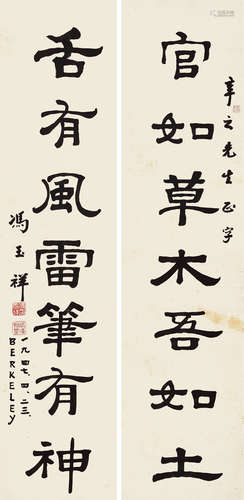 官如草木吾如土
辛之先生正字
舌有風雷筆有神
馮玉祥
一九四七、四、二三、
BERKELEY